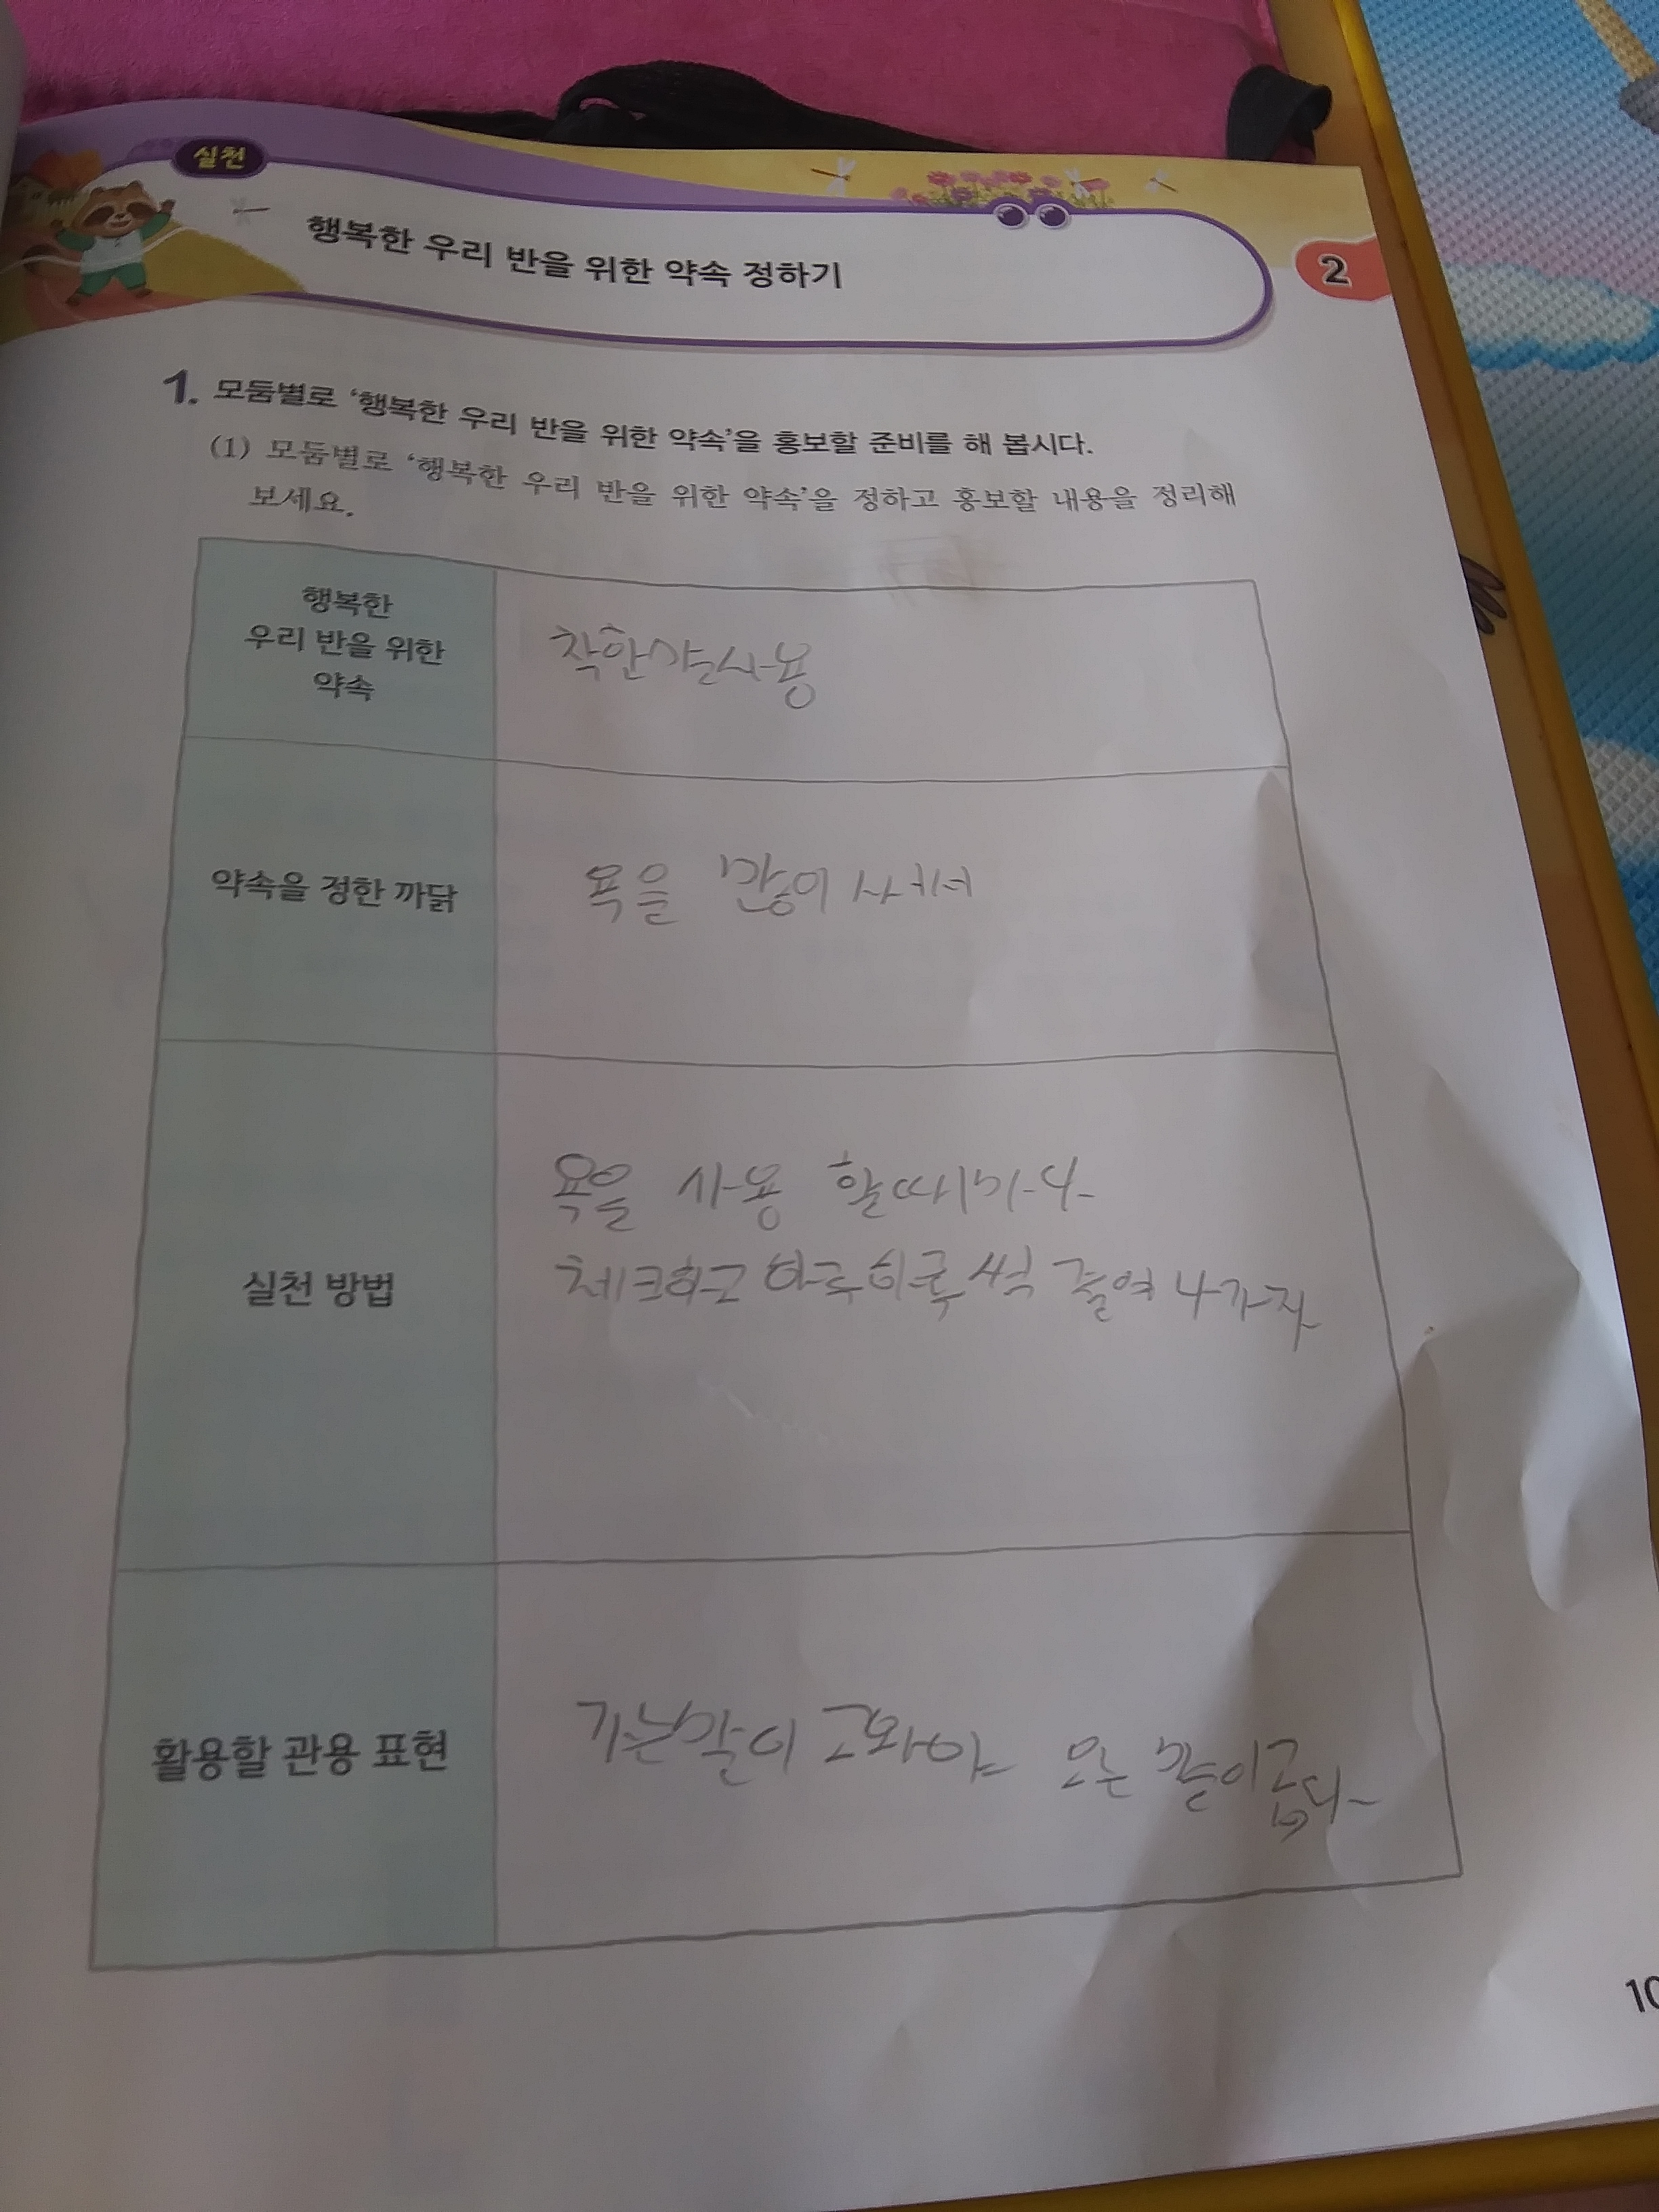 실천
행복한 우리 반을 위한 약속 정하기
2
1. 모둠별로 ‘행복한 우리 반을 위한 약속’을 홍보할 준비를 해 봅시다.
(1) 모둠별로 ‘행복한 우리 반을 위한 약속’을 정하고 홍보할 내용을 정리해
보세요.
행복한
우리 반을 위한
약속
착한말사용
약속을 정한 까닭
욕을 많이 사용해서
실천 방법
욕을 사용 할때마다
체크하고 하루하루 씩 줄여 나가자
활용할 관용 표현
가는말이 고와야 오는 말이곱다
10